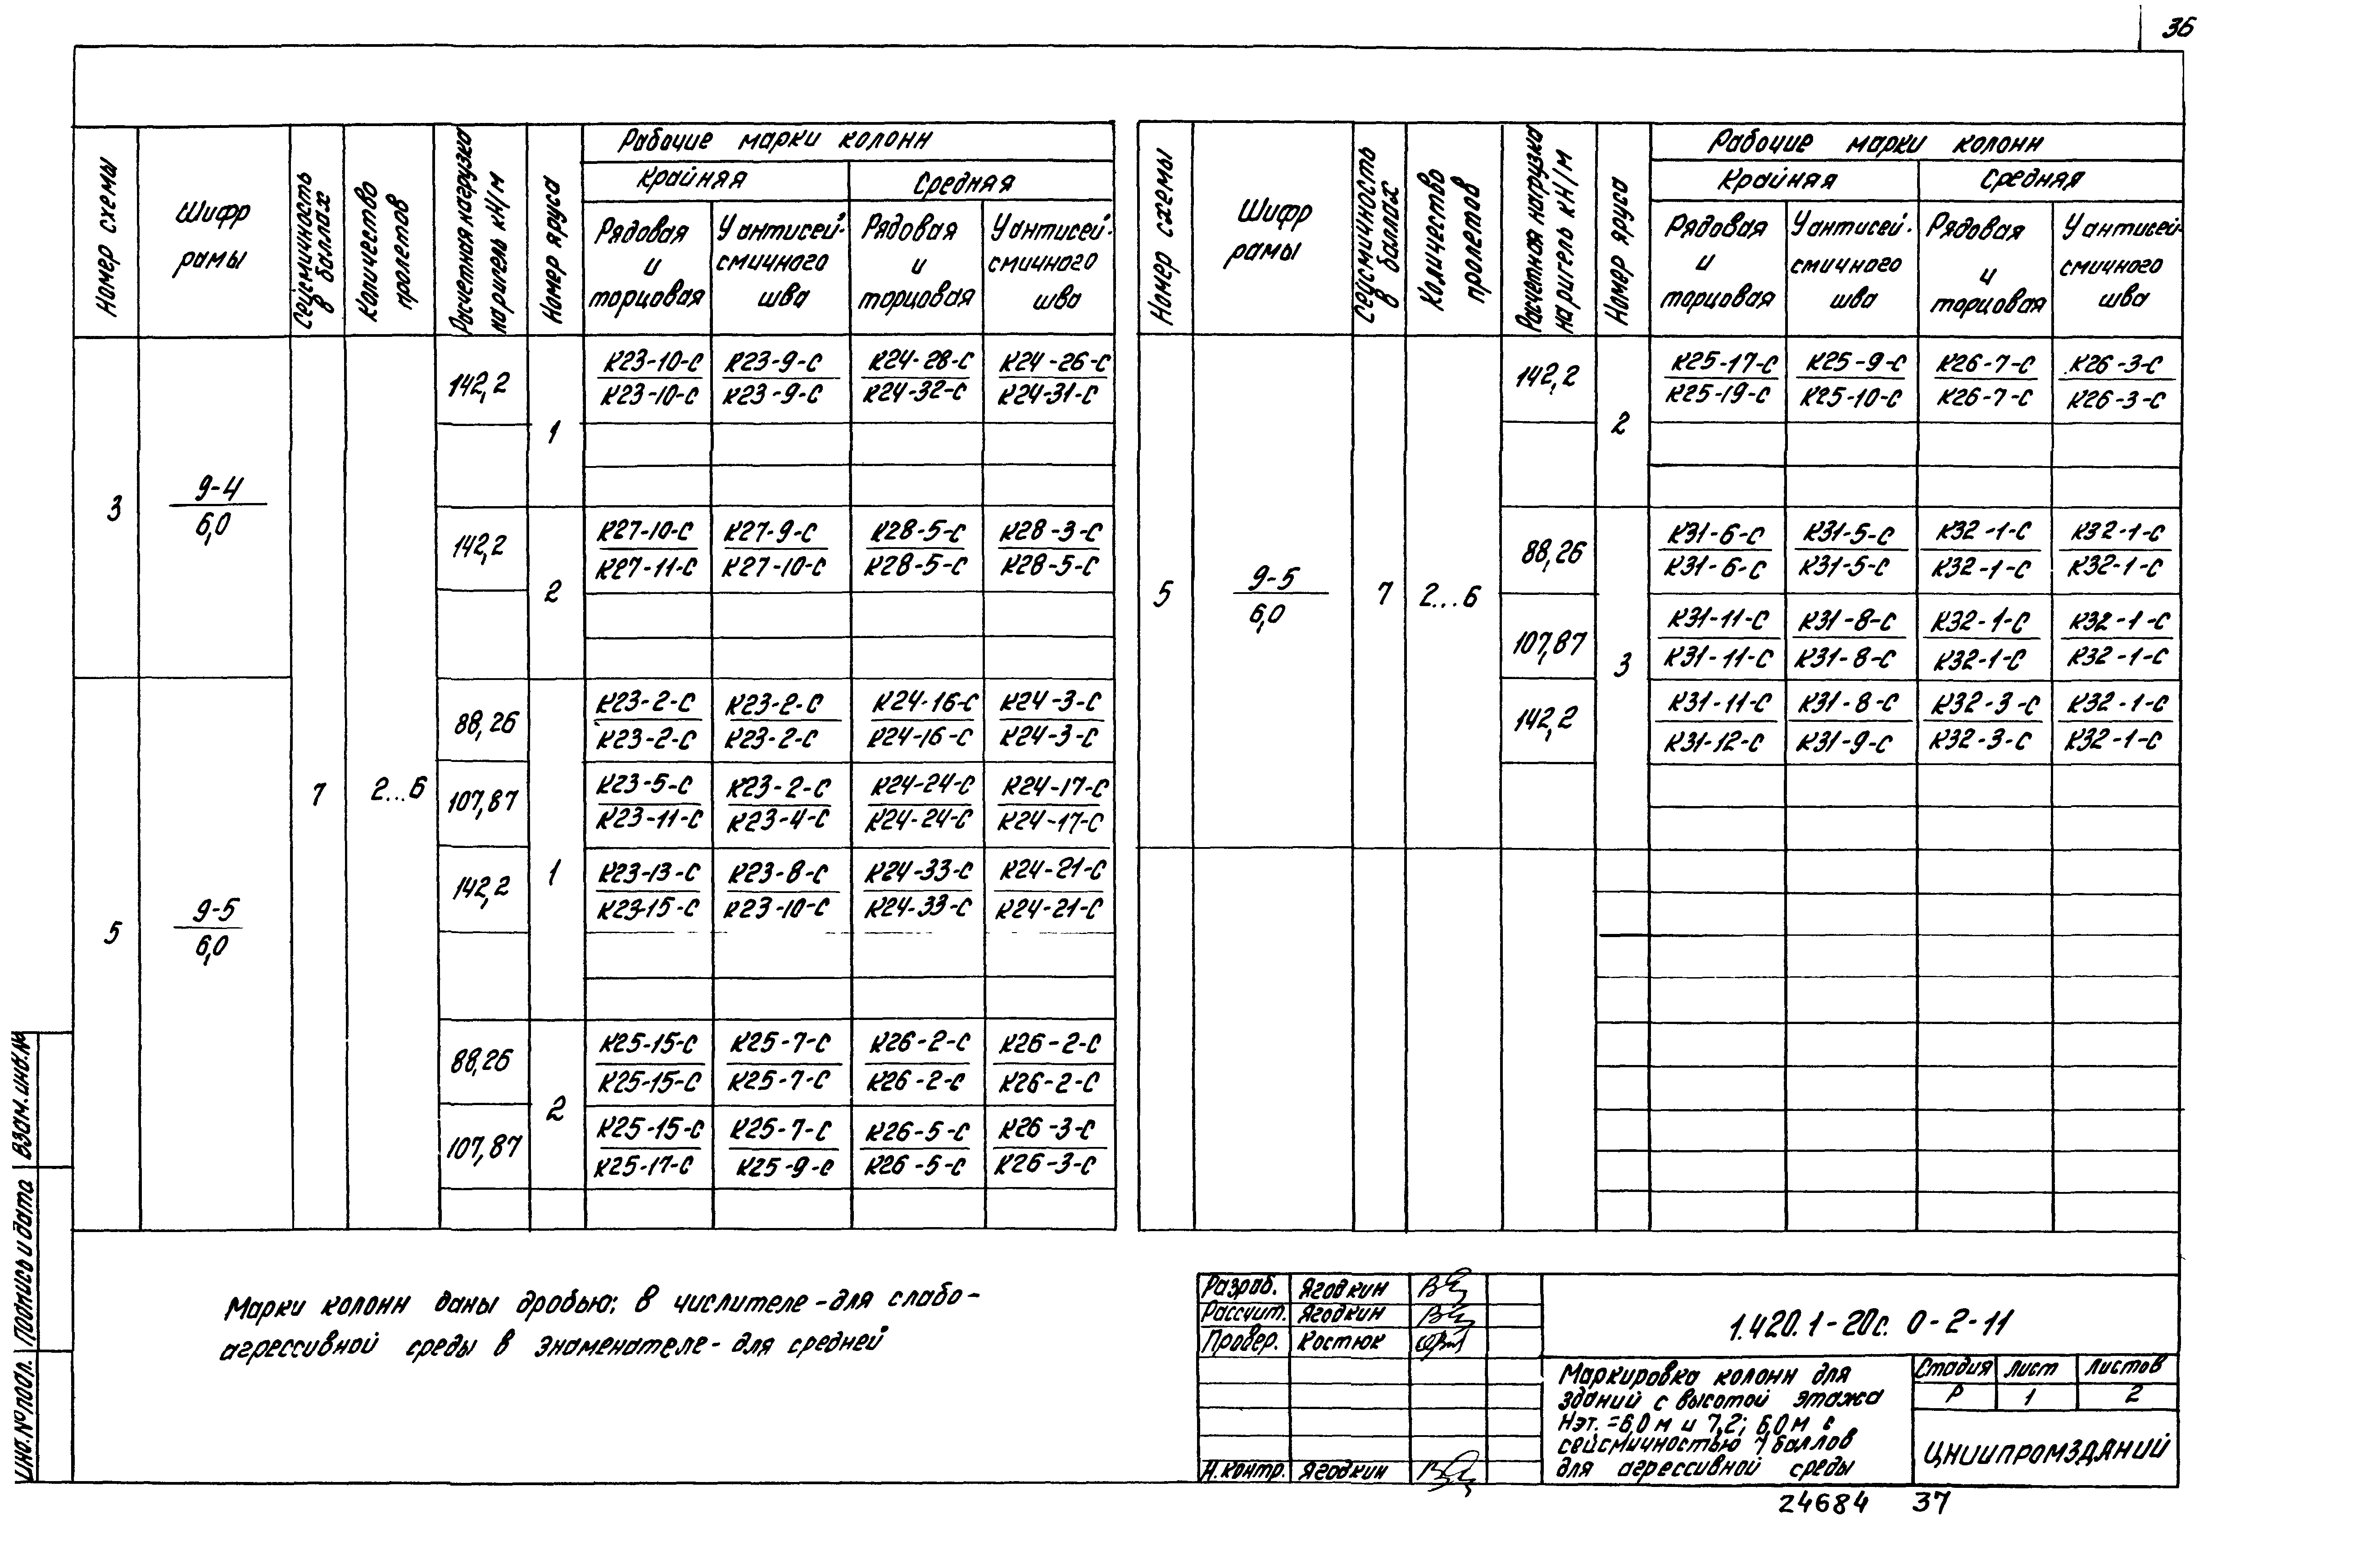 36
Номер схемы
Шифр рамы
Сейсмичность в баллах
Количество пролетов
Расчетная нагрузка на ригель кН/м
Номер яруса
Рабочие марки колонн
Крайняя
Средняя
Рядовая и торцовая
У антисейсмичного шва
Рядовая и торцовая
У антисейсмичного шва
3
9-4
6,0
7
2...6
142,2
1
К23-10-С К23-9-С К24-28-С К24-26-С
К23-10-С К23-9-С К24-32-С К24-31-С
142,2
2
К27-10-С К27-9-С К28-5-С К28-3-С
К27-11-С К27-10-С К28-5-С К28-5-С
5
9-5
6,0
88,26
1
К23-2-С К23-2-С К24-16-С К24-3-С
К23-2-С К23-2-С К24-16-С К24-3-С
107,87
К23-5-С К23-2-С К24-24-С К24-17-С
К23-11-С К23-4-С К24-24-С К24-17-С
142,2
К23-13-С К23-8-С К24-33-С К24-21-С
К23-15-С К23-10-С К24-33-С К24-21-С
88,26
2
К25-15-С К25-7-С К26-2-С К26-2-С
К25-15-С К25-7-С К26-2-С К26-2-С
107,87
К25-15-С К25-7-С К26-5-С К26-3-С
К25-17-С К25-9-С К26-5-С К26-3-С
Номер схемы
Шифр рамы
Сейсмичность в баллах
Количество пролетов
Расчетная нагрузка на ригель кН/м
Номер яруса
Рабочие марки колонн
Крайняя
Средняя
Рядовая и торцовая
У антисейсмичного шва
Рядовая и торцовая
У антисейсмичного шва
5
9-5
6,0
7
2...6
142,2
2
К25-17-С К25-9-С К26-7-С К26-3-С
К25-19-С К25-10-С К26-7-С К26-3-С
88,26
3
К31-6-С К31-5-С К32-1-С К32-1-С
К31-6-С К31-5-С К32-1-С К32-1-С
107,87
К31-11-С К31-8-С К32-1-С К32-1-С
К31-11-С К31-8-С К32-1-С К32-1-С
142,2
К31-11-С К31-8-С К32-3-С К32-1-С
К31-12-С К31-9-С К32-3-С К32-1-С
Марки колонн даны дробью: в числителе-для слабо-
агрессивной среды в знаменателе-для средней
Взам.инв.№
Подпись и дата
Инв.№ подл.
Разраб. Ягодкин
Рассчит. Ягодкин
Провер. Костюк
Н.контр. Ягодкин
1.420.1-20с. 0-2-11
Маркировка колонн для
зданий с высотой этажа
Нэт.=6,0м и 7,2; 6,0м с
сейсмичностью 7 баллов
для агрессивной среды
Стадия Лист Листов
Р 1 2
ЦНИИПРОМЗДАНИЙ
24684 37